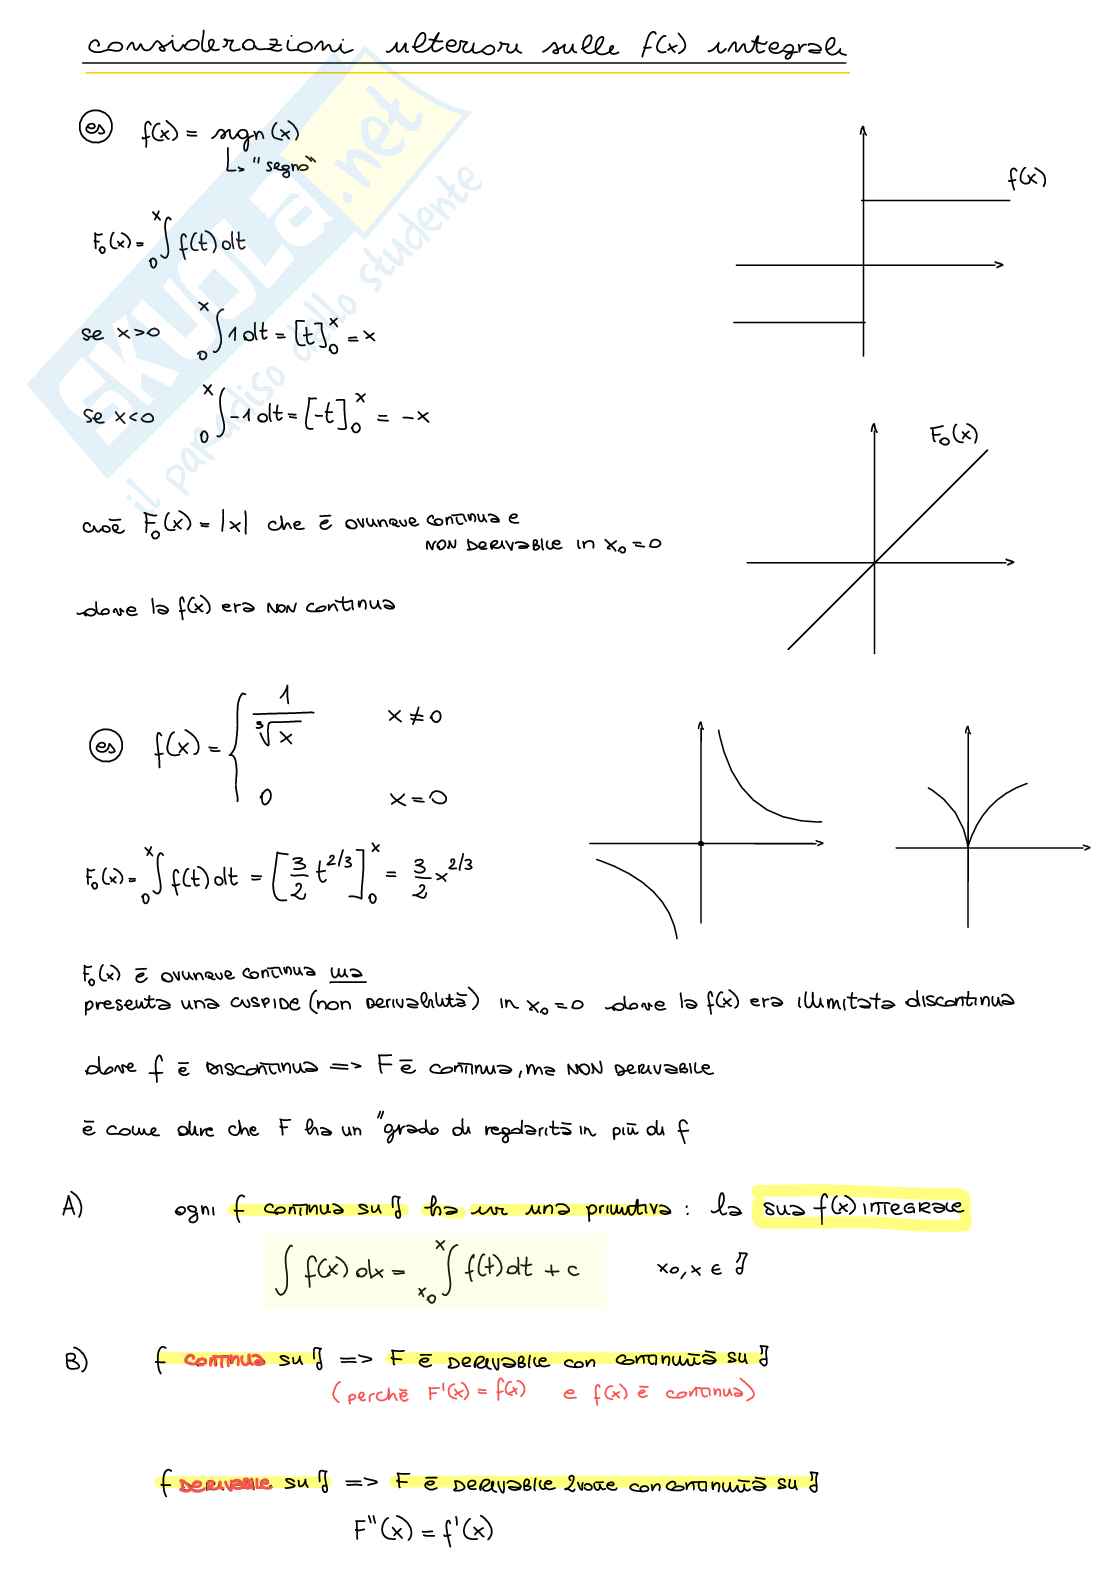 considerazioni ulteriori sulle f(x) integrali
es f(x) = sign(x)
↳ "segno"
f(x)
F₀(x) = ∫₀ˣ f(t) dt
se x>0 ∫₀ˣ 1 dt = [t]₀ˣ = x
se x<0 ∫₀ˣ -1 dt = [-t]₀ˣ = -x
F₀(x)
cioè F₀(x) = |x| che è ovunque continua e
NON DERIVABILE in x₀ = 0
dove la f(x) era NON continua
es f(x) = { 1/∛x x ≠ 0
0 x = 0
F₀(x) = ∫₀ˣ f(t) dt = [3/2 t^2/3]₀ˣ = 3/2 x^2/3
F₀(x) è ovunque continua ma
presenta una CUSPIDE (non DERIVABILITÀ) in x₀ = 0 dove la f(x) era illimitata discontinua
dove f è DISCONTINUA => F è continua, ma NON DERIVABILE
è come dire che F ha un "grado di regolarità in più di f
A) ogni f continua su J ha ivi una primitiva : la sua f(x) INTEGRALE
∫ f(x) dx = ∫ₓ₀ˣ f(t) dt + c x₀, x ∈ J
B) f continua su J => F è DERIVABILE con continuità su J
(perchè F'(x) = f(x) e f(x) è continua)
f DERIVABILE su J => F è DERIVABILE 2volte con continuità su J
F''(x) = f'(x)
SKUOLA.net
il paradiso dello studente